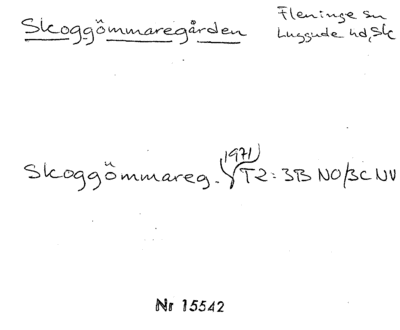 Skoggömmaregården
Fleninge sn
Luggude hd, Sk
Skoggömmareg. 1971 T2: 3B NO/3C NV
Nr 15542